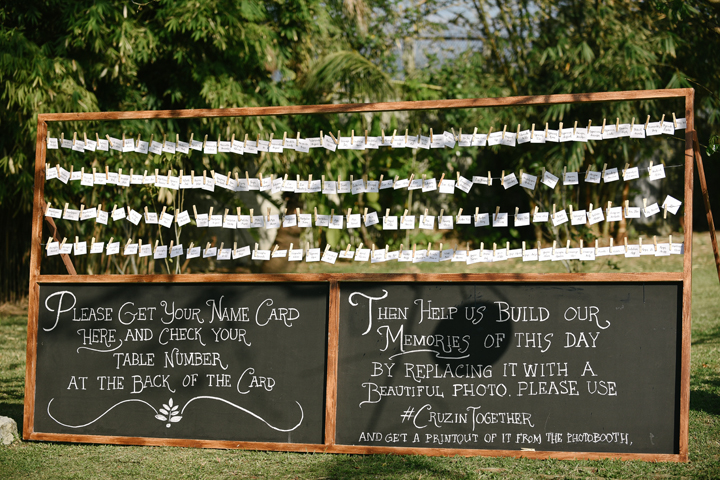 Please Get Your Name Card
Here and Check Your
Table Number
at the Back of the Card
Then Help us Build our
Memories of this Day
by Replacing it with a
Beautiful Photo. Please use
#CruzinTogether
and get a printout of it from the photobooth,